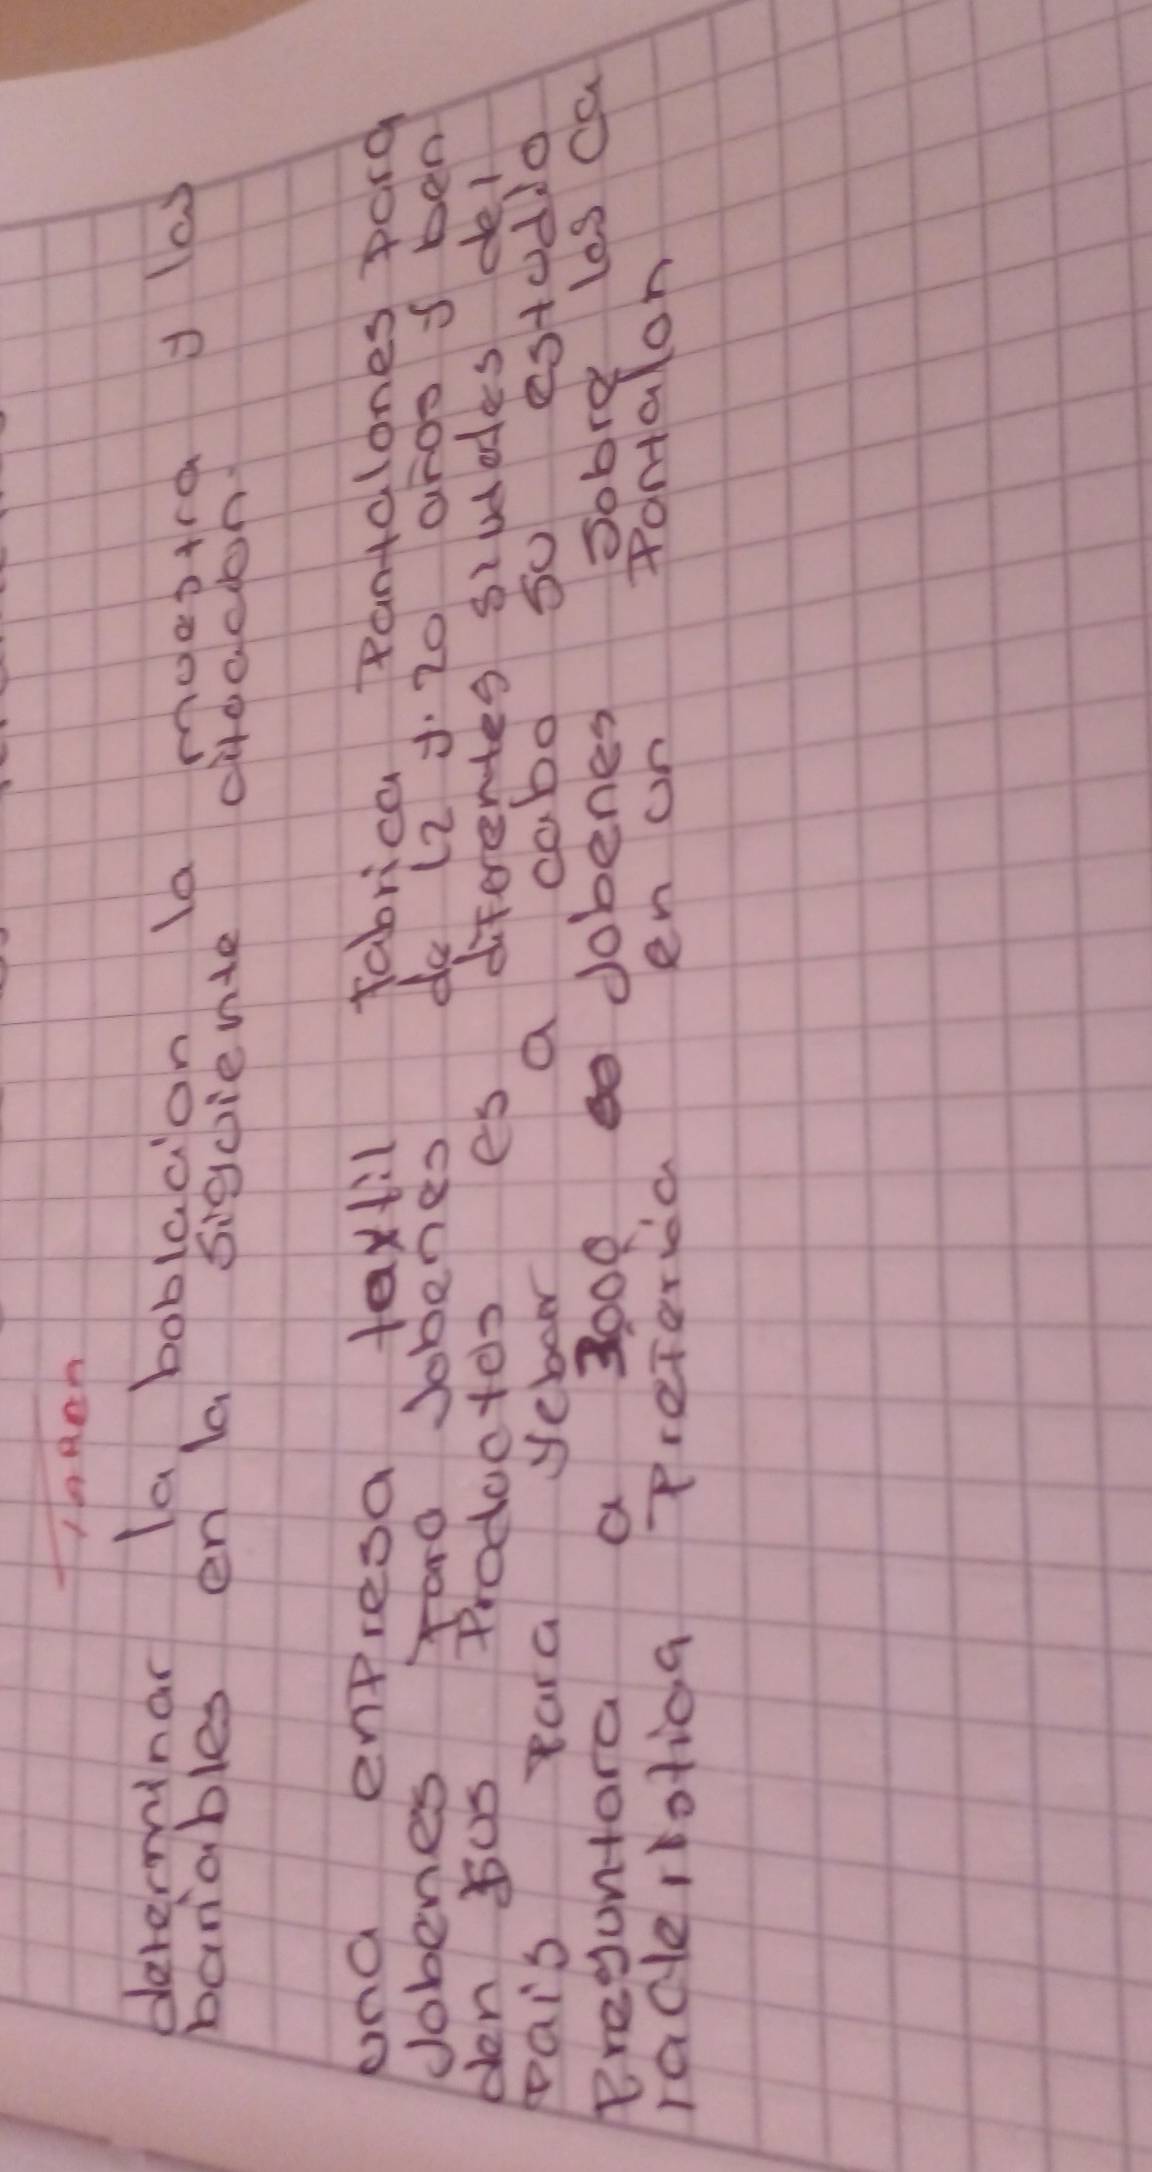 determinar la boblacion la muestra y las
bariables en la siguiente cituacion.
una enPresa textil fabrica Pantalones para
Jobenes Para Jobenes de 12 y. 20 años y ben
den sus Productos es diferentes siudedes del
Pais Para yebar a cabo su estudio
Preguntara a 3000 Jobenes Sobre las ca
Preferia en un Pantalon